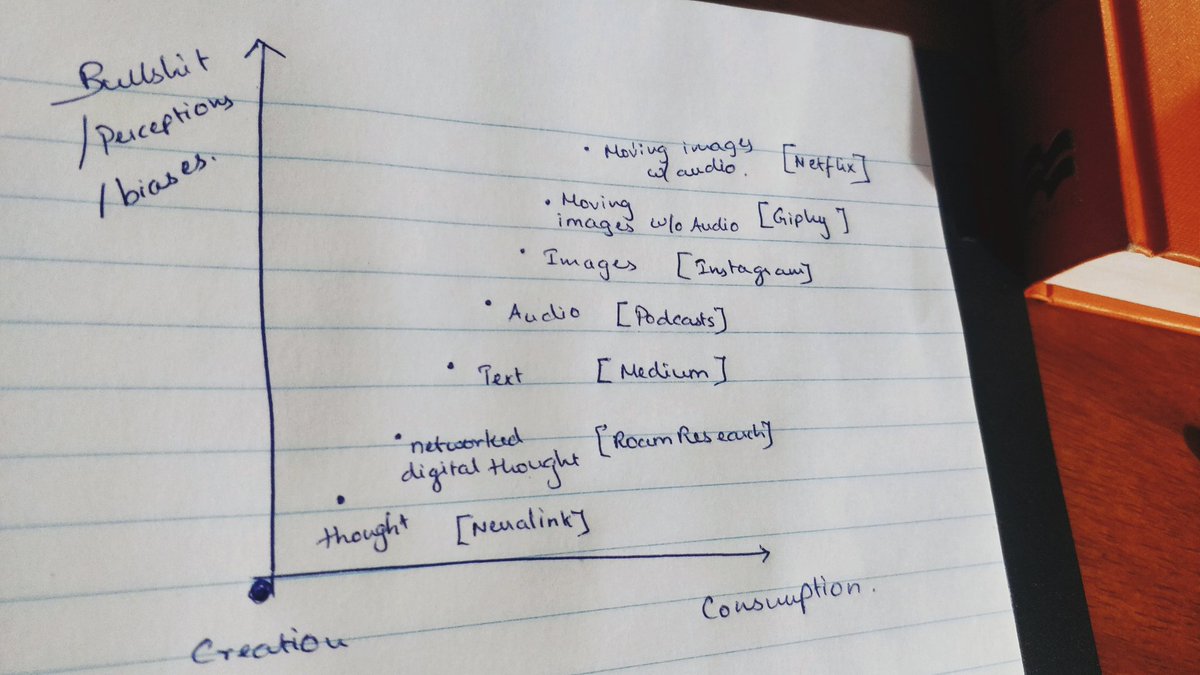 Bullshit
/Perceptions
/biases.
• Moving images
w/ audio. [Netflix]
• Moving
images w/o Audio [Giphy]
• Images [Instagram]
• Audio [Podcasts]
• Text [Medium]
• networked
digital thought [Roam Research]
• thought [Neualink]
Consumption.
Creation